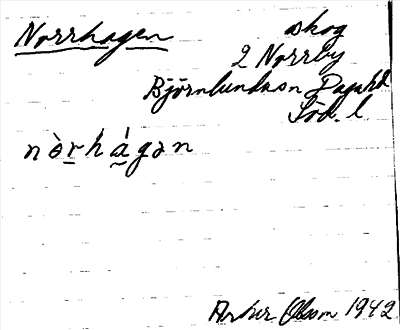 Norrhagen skog
2 Norrby
Björnlunda sn Daga hd
Söd. l.
nòrhágən
Artur Olsson 1942